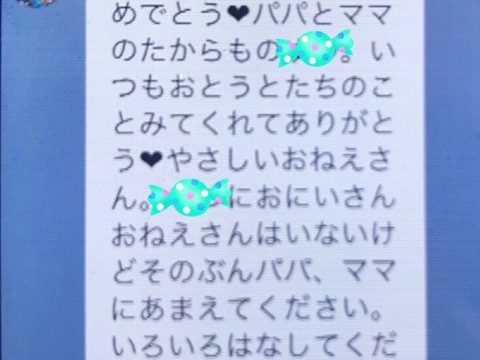 めでとう❤パパとママ
のたからもの。い
つもおとうとたちのこ
とみてくれてありがと
う❤やさしいおねえさ
ん。におにいさん
おねえさんはいないけ
どそのぶんパパ、ママ
にあまえてください。
いろいろはなしてくだ